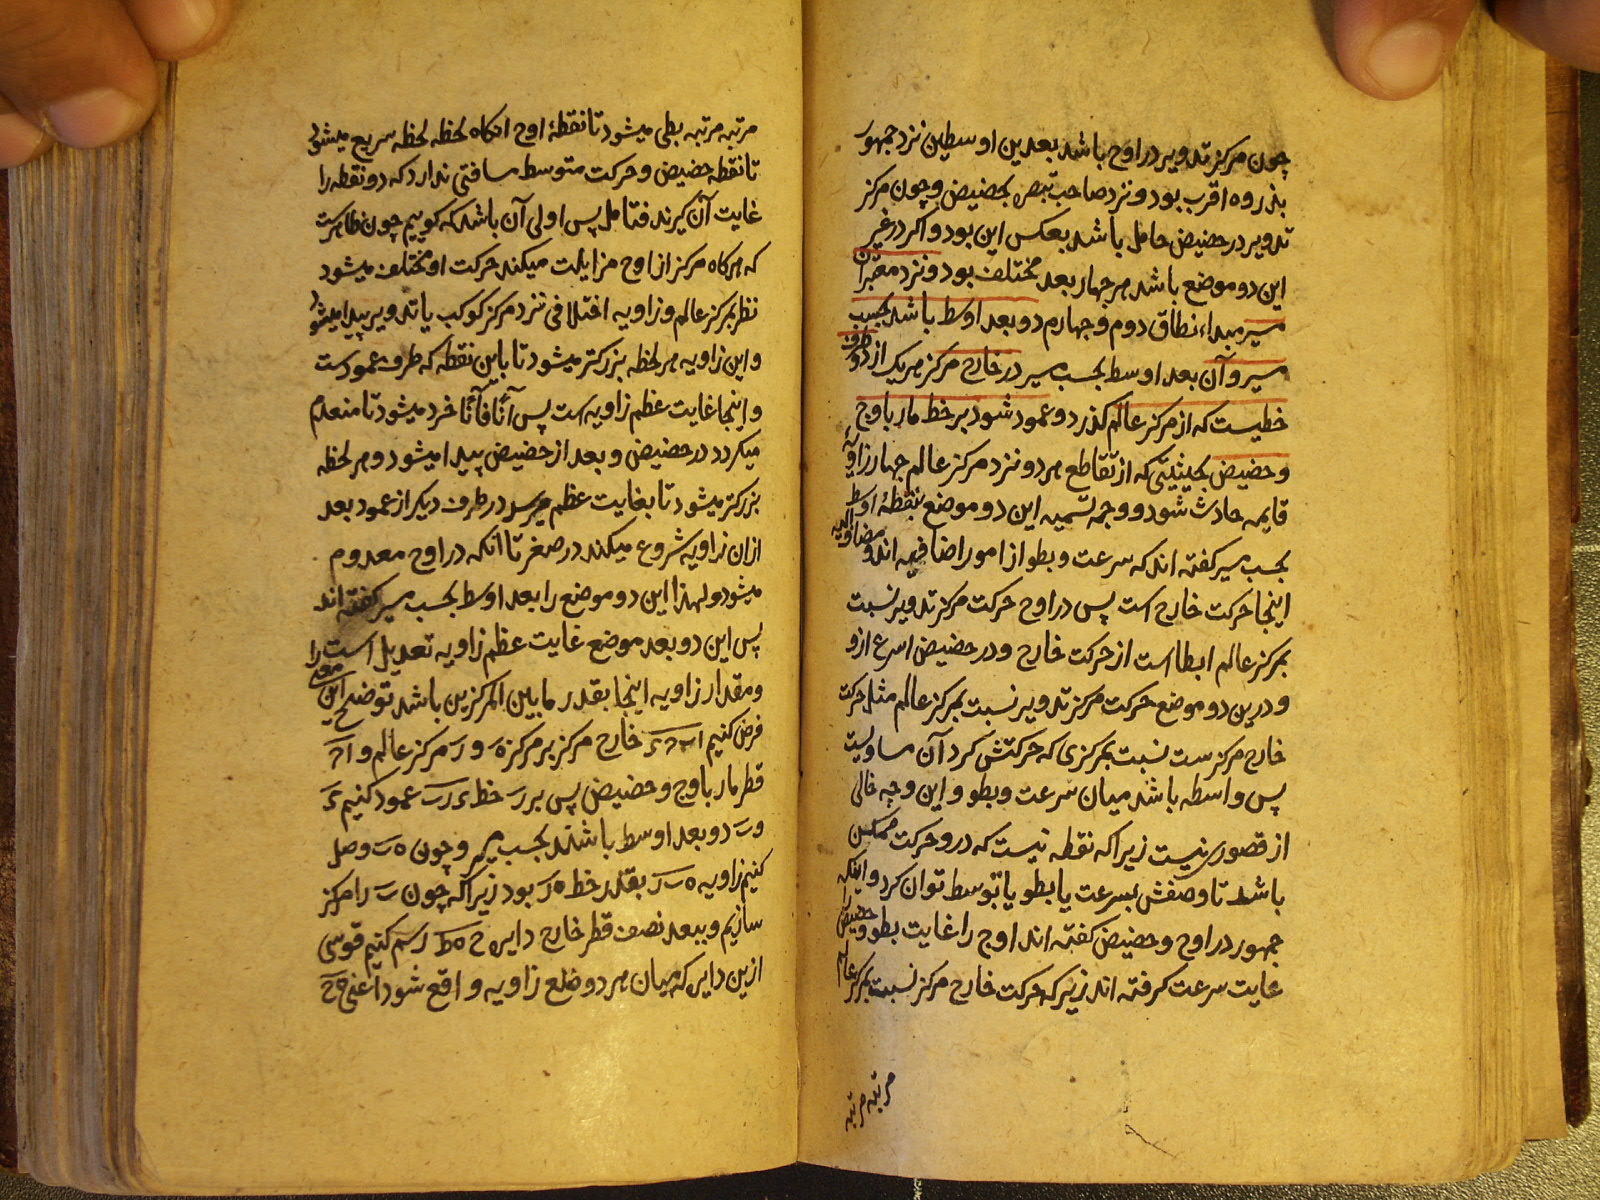 چون مرکز تدویر در اوج باشد بعدین اوسطین نزد جمهور
بذروه اقرب بود و نزد صاحب تبصره بحضیض و چون مرکز
تدویر در حضیض حامل باشد بعکس این بود و اکر در غیر
این دو موضع باشد هر چهار بعد مختلف بود و نزد معتبران
مسیر مبداء نطاق دوم و چهارم دو بعد اوسط باشد بحسب
مسیر و آن بعد اوسط بحسب مسیر در خارج مرکز هر یک از دو طرف
خطیست که از مرکز عالم کذرد و عمود شود بر خط مار باوج
و حضیض بحیثیتی که از تقاطع هر دو نزد مرکز عالم چهار زاویهٔ
قایمه حادث شود و وجه تسمیه این دو موضع بنقطهٔ اوسط
بحسب مسیر کفته اند که سرعت و بطو از امور اضافیه اند و مضاف الیه
اینجا حرکت خارج است پس در اوج حرکت مرکز تدویر نسبت
بمرکز عالم ابطا است از حرکت خارج و در حضیض اسرع ازو
و درین دو موضع حرکت مرکز تدویر نسبت بمرکز عالم مثل حرکت
خارج مرکز ست نسبت بمرکزی که حرکتش کرد آن مساویست
پس واسطه باشد میان سرعت و بطو و این وجه خالی
از قصوری نیست زیرا که نقطه نیست که درو حرکت ممکن
باشد تا وصفش بسرعت یا بطو یا توسط توان کرد و اینکه
جمهور در اوج و حضیض کفته اند اوج را غایت بطو و حضیض را
غایت سرعت کرفته اند زیرا که حرکت خارج مرکز نسبت بمرکز عالم
مرتبه مرتبه
مرتبه مرتبه بطی میشود تا نقطهٔ اوج انکاه لحظه لحظه سریع میشود
تا نقطه حضیض و حرکت متوسط مسافتی ندارد که دو نقطه را
غایت آن کیرند فتامل پس اولی آن باشد که کوییم چون ظاهرست
که هرکاه مرکز از اوج مزایلت میکند حرکت او مختلف میشود
نظر بمرکز عالم و زاویه اختلافی نزد مرکز کوکب یا تدویر پیدا میشود
و این زاویه هر لحظه بزرکتر میشود تا باین نقطه که طرف عمودست
و اینجا غایت عظم زاویه است پس آناً فآناً خرد میشود تا منعدم
میکردد در حضیض و بعد از حضیض پیدا میشود و هر لحظه
بزرکتر میشود تا بغایت عظم میرسد در طرف دیکر از عمود بعد
ازان زاویه شروع میکند در صغر تا آنکه در اوج معدوم
میشود و لهذا این دو موضع را بعد اوسط بحسب مسیر کفته اند
پس این دو بعد موضع غایت عظم زاویه تعدیل است
و مقدار زاویه اینجا بقدر ما بین المرکزین باشد توضیح این معنی را
فرض کنیم خارج مرکز بر مرکز ه و ر مرکز عالم و
قطر مار باوج و حضیض پس بر ر خط عمود کنیم
دو بعد اوسط باشند بحسب مسیر و چون ه ب وصل
کنیم زاویه ه ب ر بقدر خط ه ر بود زیرا که چون ب را مرکز
سازیم و ببعد نصف قطر خارج دایره رسم کنیم قوسی
ازین دایره که میان هر دو ضلع زاویه واقع شود اعنی